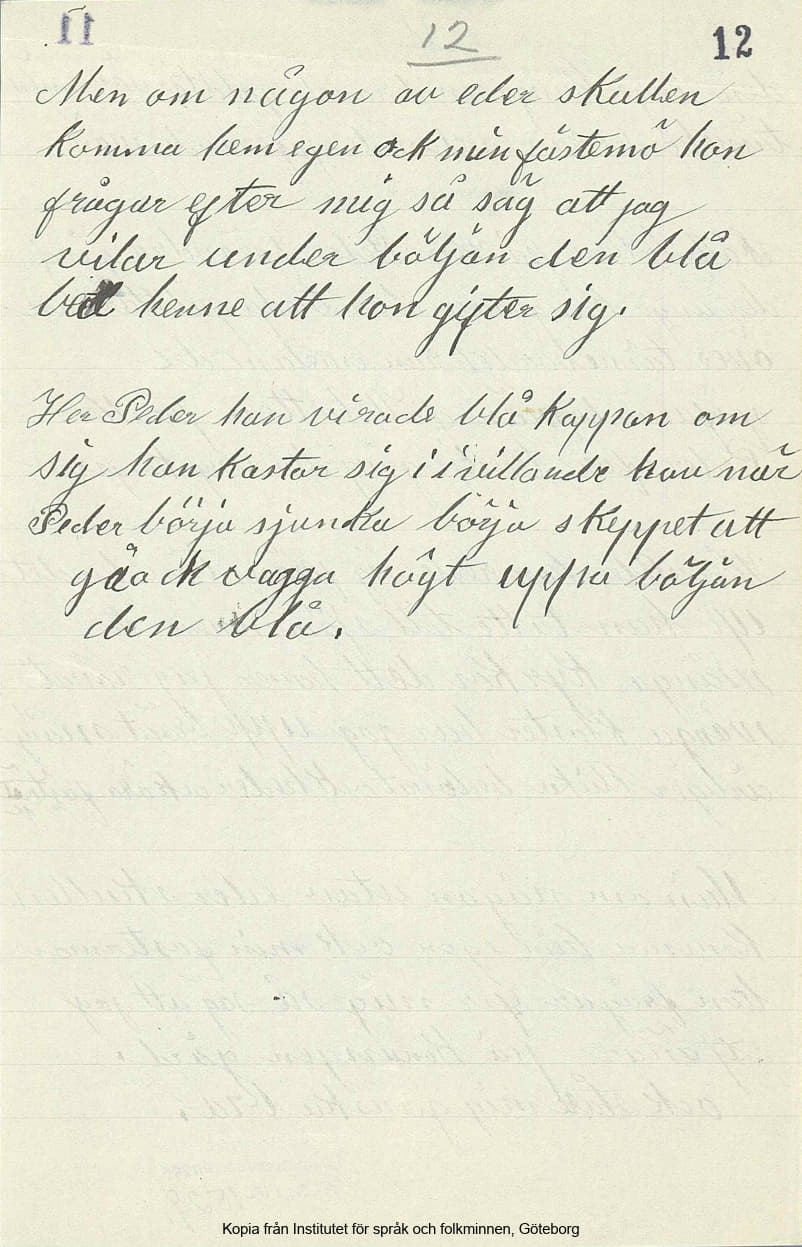 12
12
Men om någon av eder skullen
komma hem egen ock min fästemö hon
frågar efter mig så säg att jag
vilar under böljan den blå
bed henne att hon gifter sig.
Her Peder han virade blå kappan om
sig han kastar sig i i villande hav når
Peder börja sjunka börja skeppet att
gå ock vagga högt uppa böljan
den blå.
Kopia från Institutet för språk och folkminnen, Göteborg